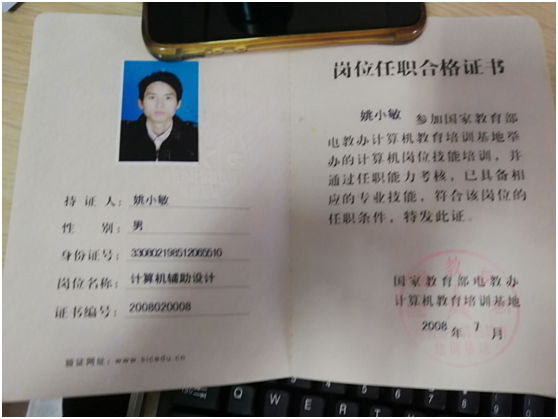 持 证 人：姚小敏
性 别：男
身份证号：330802198512065510
岗位名称：计算机辅助设计
证书编号：2008020008
验证网址：www.sicedu.cn
岗位任职合格证书
姚小敏 参加国家教育部
电教办计算机教育培训基地举
办的计算机岗位技能培训，并
通过任职能力考核，已具备相
应的专业技能，符合该岗位的
任职条件，特发此证。
国家教育部电教办
计算机教育培训基地
2008 年 7 月
Q W E R T